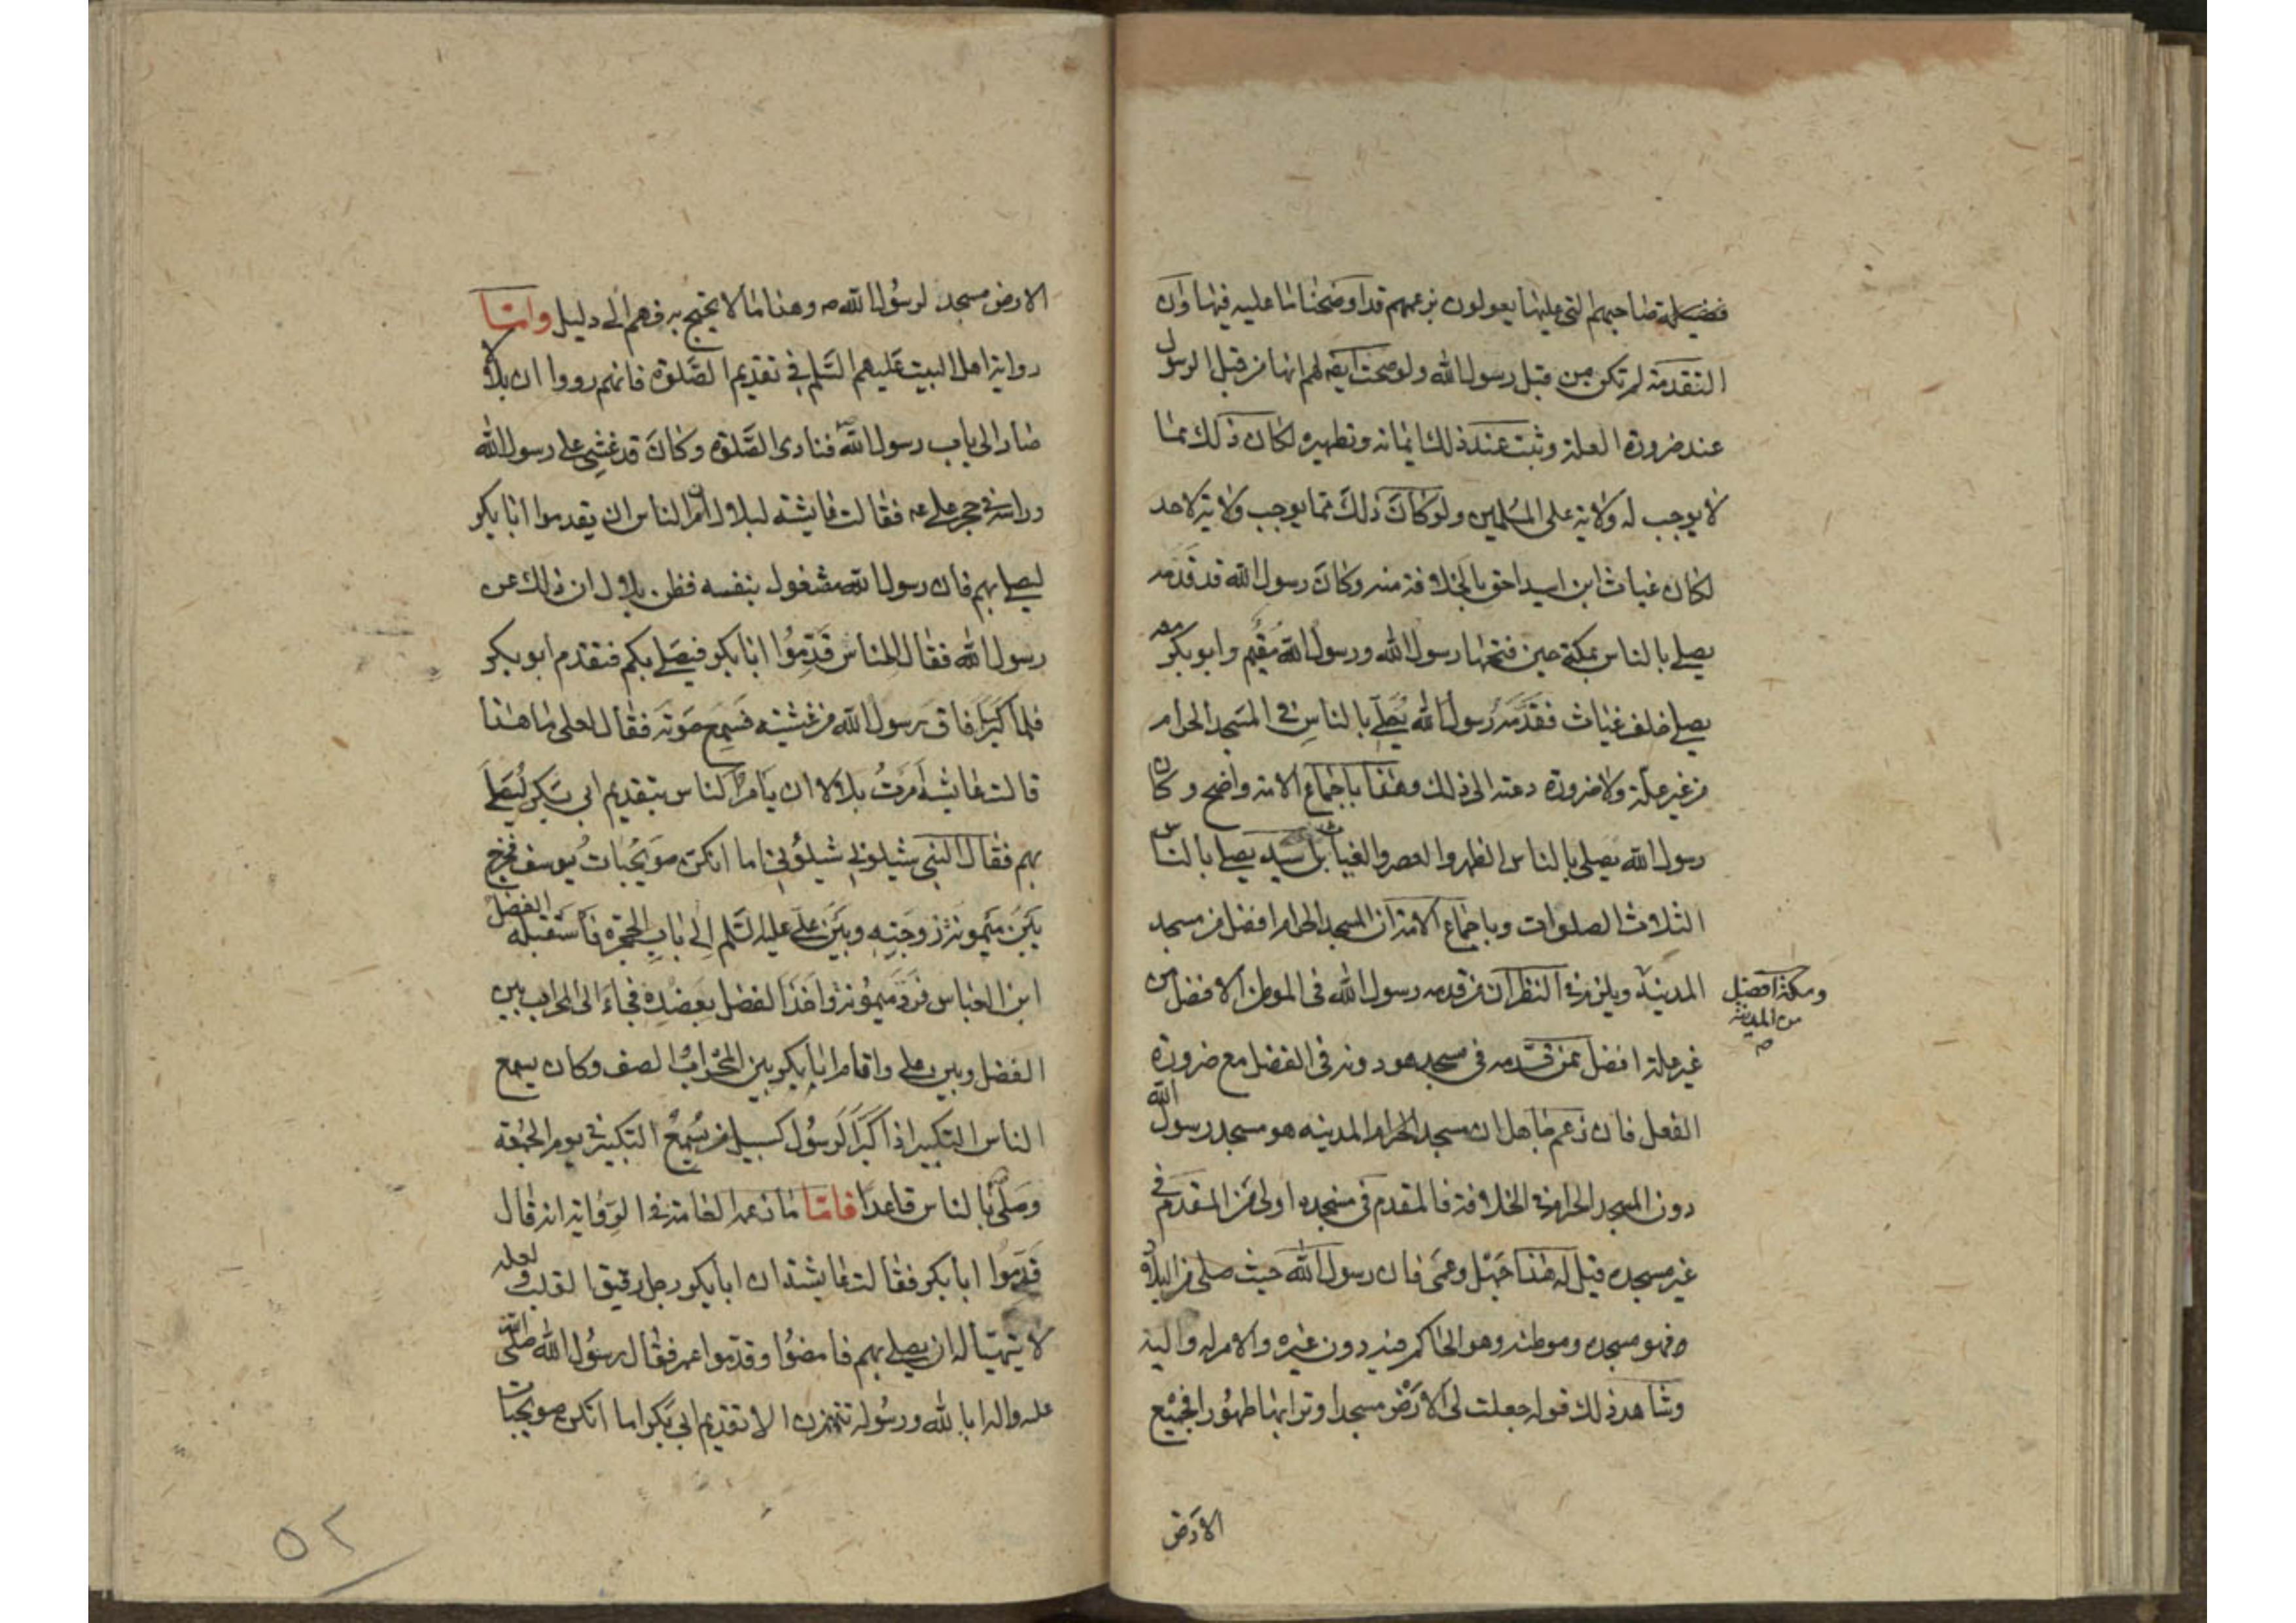 فضيلة صاحبهم التي عليها يعولون بزعمهم قد اوضحنا ما عليه فيها وان
التقدمة لم تكن من قبل رسول الله ولو صحت ايضا لهم انها من قبل الرسول
عند ضرورة العلة وثبت عند ذلك ايمانه وتطهيره لكان ذلك مما
لا يوجب له ولاية على المسلمين ولو كان ذلك مما يوجب ولاية لاحد
لكان غياث ابن اسيد احق بالخلافة منه وكان رسول الله قد قدمه
يصلي بالناس بمكة حين فتحها رسول الله ورسول الله مقيم وابو بكر معه
يصلي خلف غياث فقدمه رسول الله يصلي بالناس في المسجد الحرام
من غير علة ولا ضرورة دعته الى ذلك وهذا باجماع الامة واضح وكان
رسول الله يصلي بالناس الظهر والعصر والغياث بن اسيد يصلي بالناس
الثلاث الصلوات وباجماع الامة ان المسجد الحرام افضل من مسجد
المدينة ويلزم في النظر ان من قدمه رسول الله في الموطن الافضل من
ومكة افضل
من المدينة
صح
غير علة افضل ممن قدمه في مسجد هو دونه في الفضل مع ضرورة
الفعل فان زعم جاهل ان مسجد الحرام المدينه هو مسجد رسول الله
دون المسجد الحرام في الخلافة فالمقدم في مسجده اولى من المقدم في
غير مسجده قيل له هذا جهل وعمى فان رسول الله حيث صلى من البلاد
فهو مسجده وموطنه وهو الحاكم فيه دون غيره والامر له واليه
وشاهد ذلك قوله جعلت لي الارض مسجدا وترابها طهورا فجميع
الارض
الارض مسجد لرسول الله ص وهذا ما لا يحتج به فهم الى دليل واما
رواية اهل البيت عليهم السلم في تقديم الصلوة فانهم رووا ان بلالا
صار الى باب رسول الله ص فنادى الصلوة وكان قد غشي على رسول الله
وراسه في حجر علي عه فقالت عايشة لبلال أمر الناس ان يقدموا ابا بكر
ليصلي بهم فان رسول الله مشغول بنفسه فظن بلال ان ذلك عن
رسول الله فقال للناس قدموا ابا بكر فيصلي بكم فتقدم ابو بكر
فلما كبر افاق رسول الله من غشيته فسمع صوته فقال لعلى ما هذا
قالت عايشة امرت بلالا ان يامر الناس بتقديم ابي بكر ليصلي
بهم فقال النبي شيلوني شيلوني اما انكن صويحبات يوسف فخرج
بين ميمونة زوجته وبين علي عليه السلم الى باب الحجرة فاستقبله الفضل
ابن العباس فرد ميمونة واخذ الفضل بعضده فجاء الى المحراب بين
الفضل وبين علي واقام ابا بكر بين المحراب والصف وكان يسمع
الناس التكبير اذا كبر الرسول كسبيل من يسمع التكبير في يوم الجمعة
وصلى بالناس قاعدا فاما ما زعم العامة في الرواية انه قال
قدموا ابا بكر فقالت عايشة ان ابا بكر رجل رقيق القلب ولعله
لا يتهيأ له ان يصلي بهم فامضوا وقدموا عمر فقال رسول الله صلى الله
عليه واله ابا لله ورسوله تتهمزن الا تقديم ابي بكر اما انكن صويحبات
٥٢